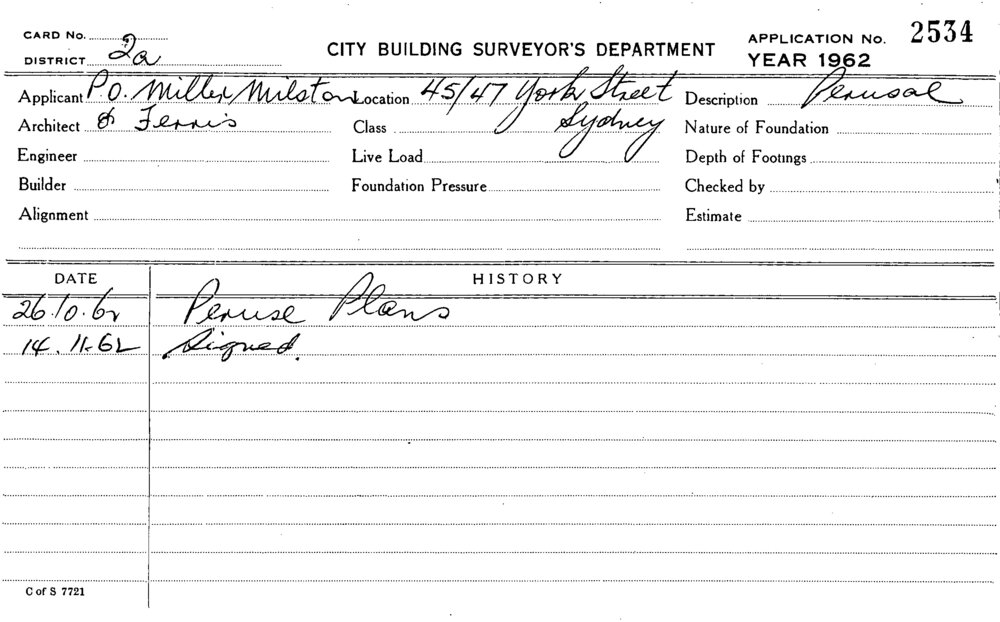 CARD No.
DISTRICT 2a
CITY BUILDING SURVEYOR'S DEPARTMENT
APPLICATION No. 2534
YEAR 1962
Applicant P.O. Miller Milston Location 45/47 York Street Description Perusal
Architect & Ferris Class Sydney Nature of Foundation
Engineer Live Load Depth of Footings
Builder Foundation Pressure Checked by
Alignment Estimate
DATE HISTORY
26.10.62 Peruse Plans
14.11.62 Signed.
C of S 7721